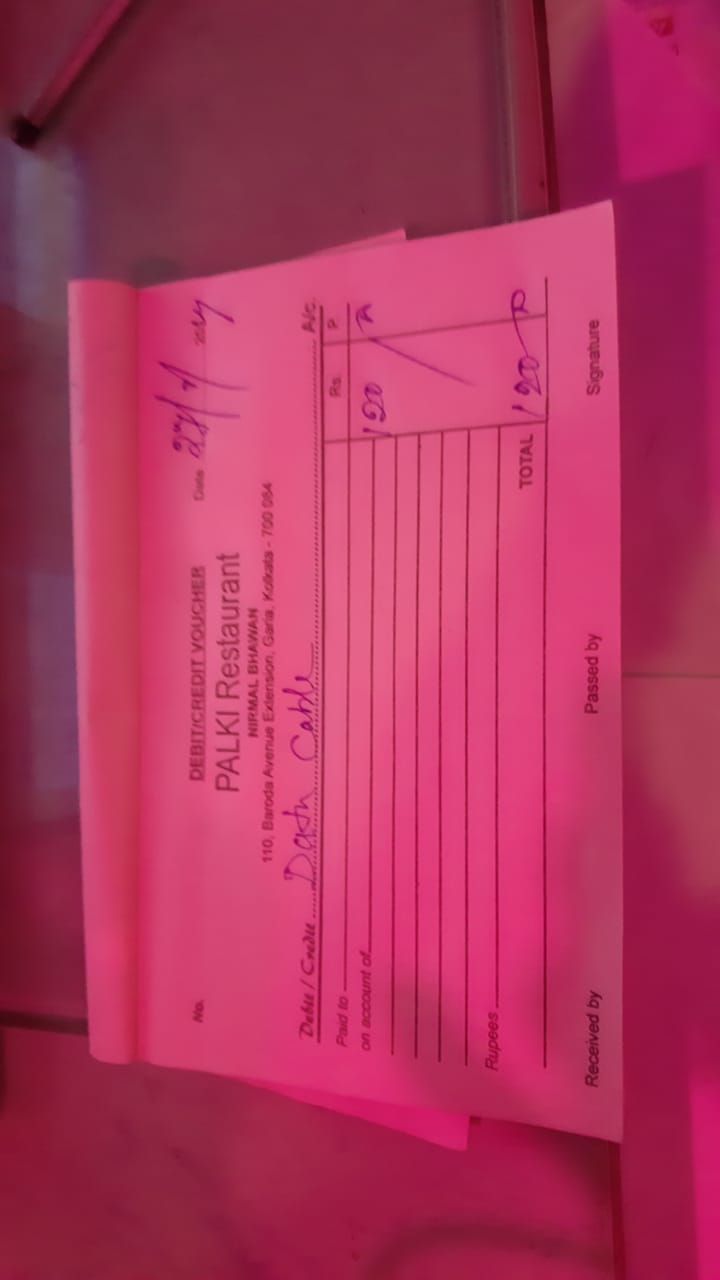 No. DEBIT/CREDIT VOUCHER Date
PALKI Restaurant
NIRMAL BHAWAN
110, Baroda Avenue Extension, Garia, Kolkata - 700 084
Debit / Credit Data Cable A/c.
Paid to Rs. P.
on account of 120
Rupees
TOTAL 120
Received by Passed by Signature